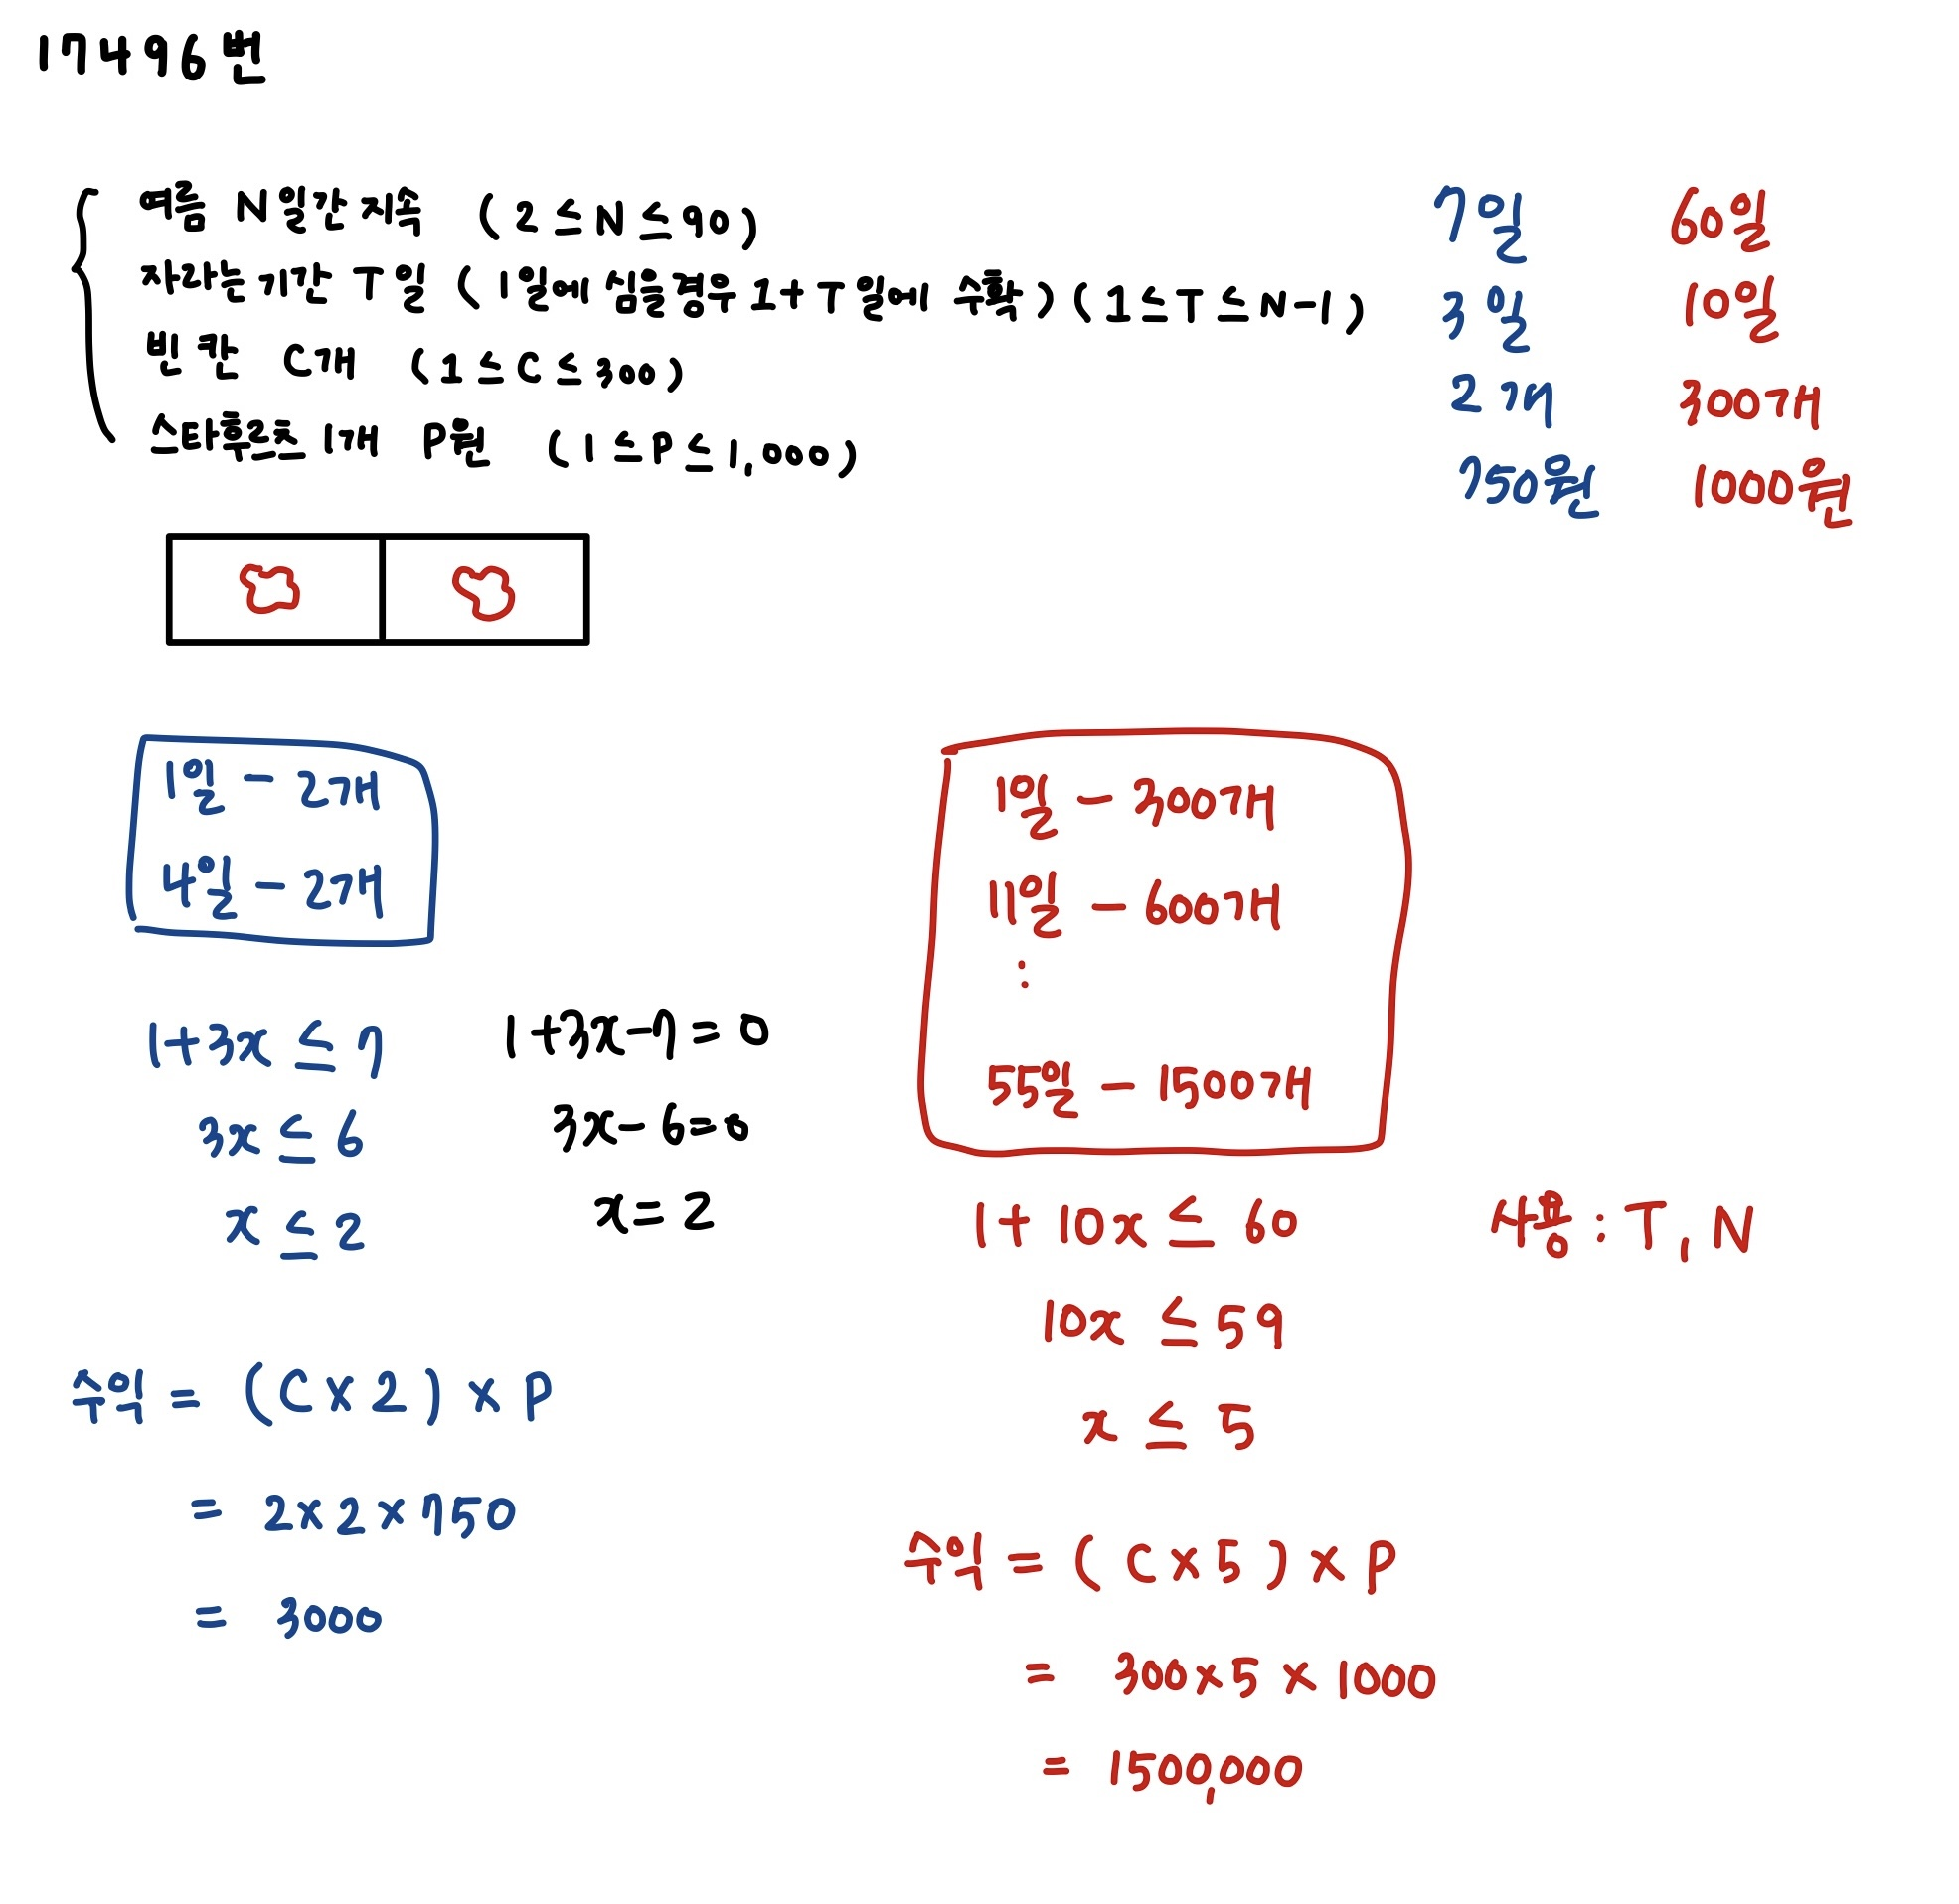 17496번
여름 N일간 지속 (2 ≤ N ≤ 90)
자라는 기간 T일 (1일에 심을 경우 1+T일에 수확) (1 ≤ T ≤ N-1)
빈 칸 C개 (1 ≤ C ≤ 300)
스타후르츠 1개 P원 (1 ≤ P ≤ 1,000)
7일 60일
3일 10일
2개 300개
750원 1000원
1일 - 2개
4일 - 2개
1+3x ≤ 7
3x ≤ 6
x ≤ 2
1+3x-7=0
3x-6=0
x=2
수익 = (C×2)×P
= 2×2×750
= 3000
1일 - 300개
11일 - 600개
:
55일 - 1500개
1+10x ≤ 60
10x ≤ 59
x ≤ 5
사용 : T, N
수익 = (C×5)×P
= 300×5×1000
= 1500,000